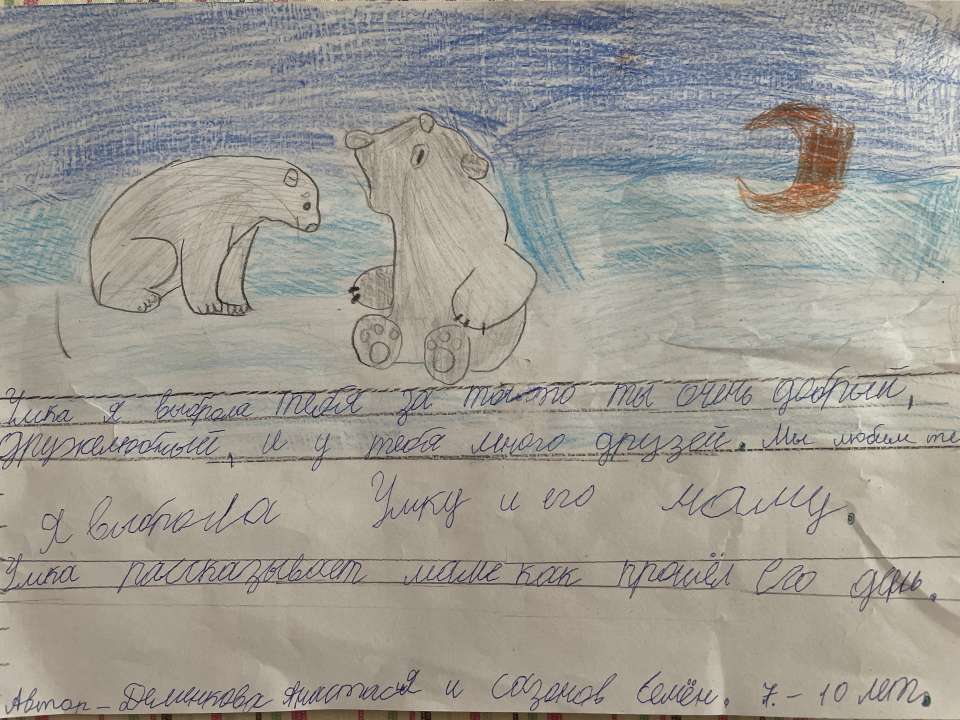 Умка я выбрала тебя за то что ты очень добрый,
дружелюбный, и у тебя много друзей. Мы любим те
Я выбрала Умку и его маму.
Умка рассказывает маме как прошёл его день.
Автор – Деменкова Анастасия и Сазонов Семён. 7 – 10 лет.